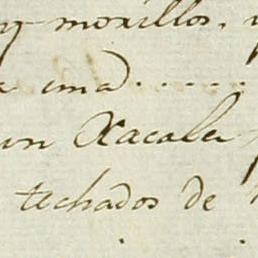 y morillos,
a una) . . . . .
un Xacales
techados de